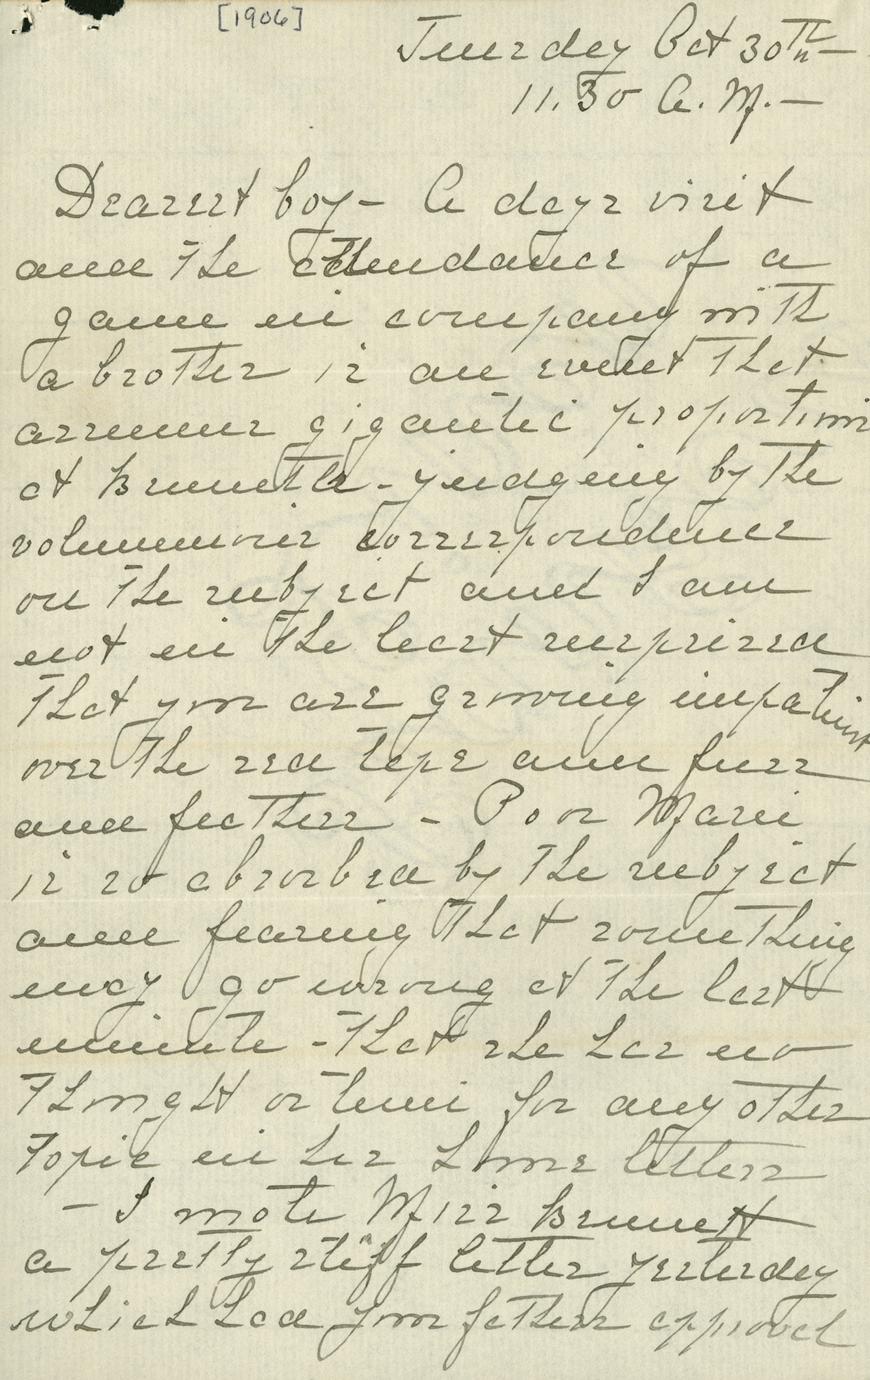 [1906]
Tuesday Oct 30th—
11.30 A.M.—
Dearest boy— A days visit
and the attendance of a
game in company with
a brother is an event that
assumes gigantic proportions
at Bennetts - judging by the
voluminous correspondence
on the subject and I am
not in the least surprised
that you are growing impatient
over the red tape and fuss
and feathers - Poor Marie
is so absorbed by the subject
and fearing that something
may go wrong at the last
minute - that she has no
thought or time for any other
topic in her home letters
- I wrote Miss Bennett
a pretty stiff letter yesterday
which had your fathers approval